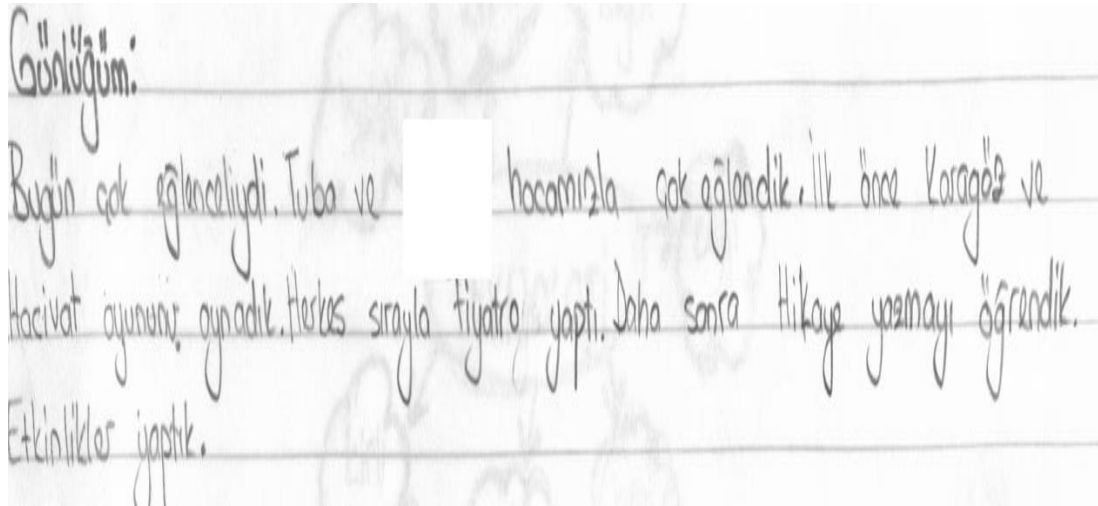 Günlüğüm:
Bugün çok eğlenceliydi. Tuba ve hocamızla çok eğlendik. İlk önce Karagöz ve
Hacivat oyununu oynadık. Herkes sırayla tiyatro yaptı. Daha sonra Hikaye yazmayı öğrendik.
Etkinlikler yaptık.